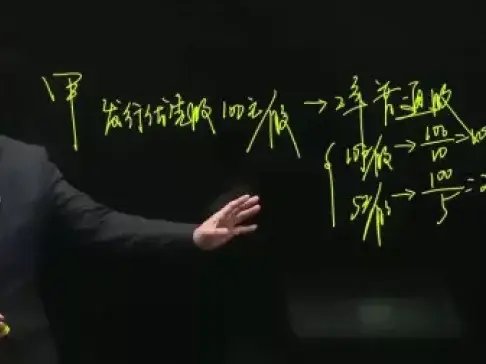 甲 发行优先股100元/股→2年普通股
10元/股→100/10=10
5元/股→100/5=2